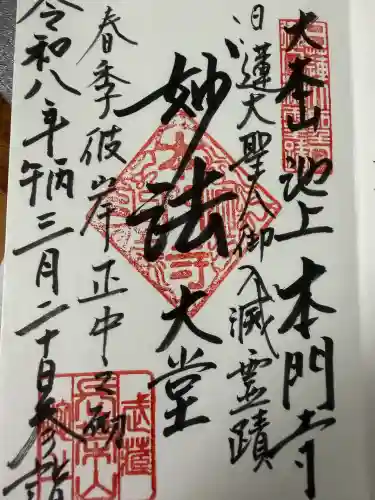 大本山 池上 本門寺
日蓮大聖人御入滅霊蹟
妙法
大堂
春季彼岸正中之砌
令和八年丙午三月二十日参詣